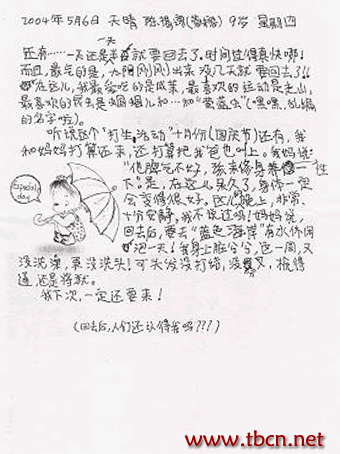 2004年5月6日 天晴 9岁 星期四
一天
还有……一天还是半就要回去了。时间过得真快哪!
而且,最气的是,太阳刚刚出来没几天就要回去了!!
在这儿,我最爱吃的是咸菜,最喜欢的运动是走山,
最喜欢的昆虫是蝈蝈儿和…和“萤蓝虫”(嘿嘿,乱编
的名字啦)。
听说这个“打生活动”十月份(国庆节)还有,我
和妈妈打算还来,还打算把我爸也叫上。我妈说:
“他脾气不好,该来修身养一性
下。”是,在这儿呆久了,身体一定
会变得很好。这儿晚上,非常、
十分安静,我不说过吗!妈妈说,
回去后,要去“蓝色海岸”有水休闲
泡一天!我身上脏兮兮,这一周,又
没洗澡,更没洗头!可头发没打结,没臭,梳得
通,还是将就。
我下次,一定还要来!
(回去后,人们还认得我吗???)
Especial
day
www.tbcn.net